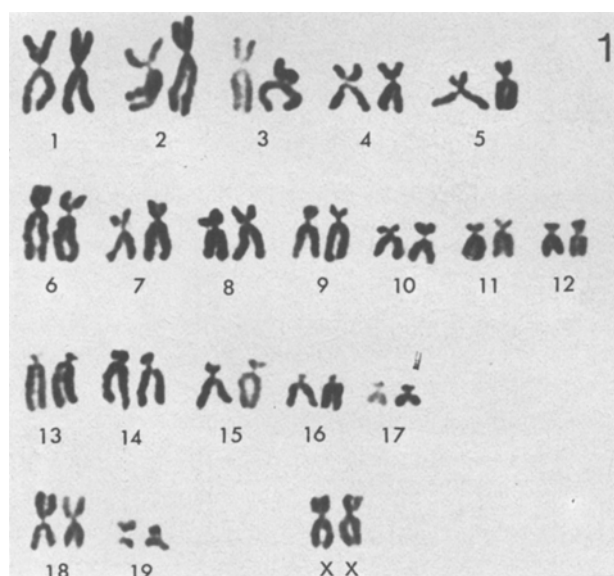 1
1 2 3 4 5
6 7 8 9 10 11 12
13 14 15 16 17
18 19 X X